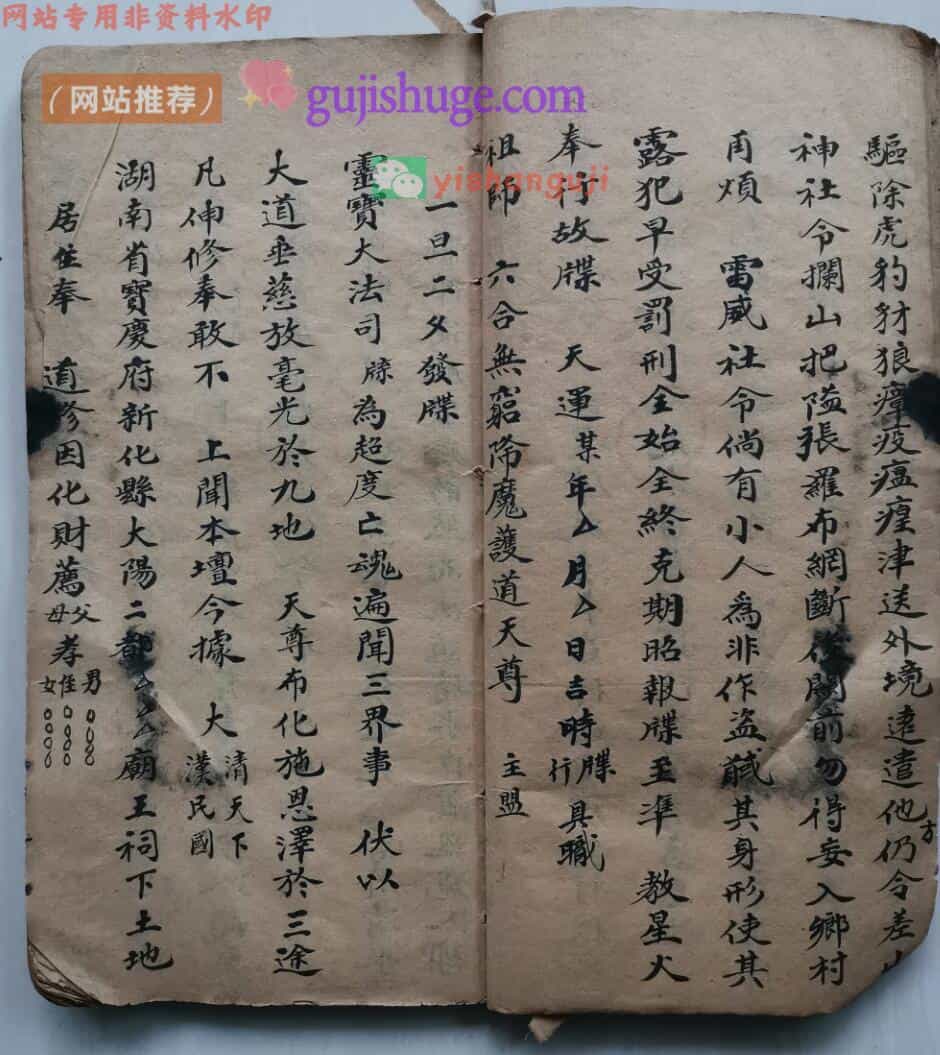 网站专用非资料水印
（网站推荐）
gujishuge.com
yishanguji
驅除虎豹豺狼瘴疫瘟瘽津送外境遠遣他方仍令差
神社令攔山把隘張羅布網斷後關前勿得妄入鄉村
再煩 雷威社令倘有小人為非作盜馘其身形使其
露犯早受罰刑全始全終克期昭報牒至準 教星火
奉行故牒 天運某年厶月厶日吉時牒行具職
祖師 六合無窮降魔護道天尊 主盟
一旦二夕發牒
靈寶大法司 牒為超度亡魂遍聞三界事 伏以
大道垂慈放毫光於九地 天尊布化施恩澤於三途
凡伸修奉敢不 上聞本壇今據 大清天下漢民國
湖南省寶慶府新化縣大陽二都厶厶廟王祠下土地
居住奉 道 因化財薦父母孝男侄女